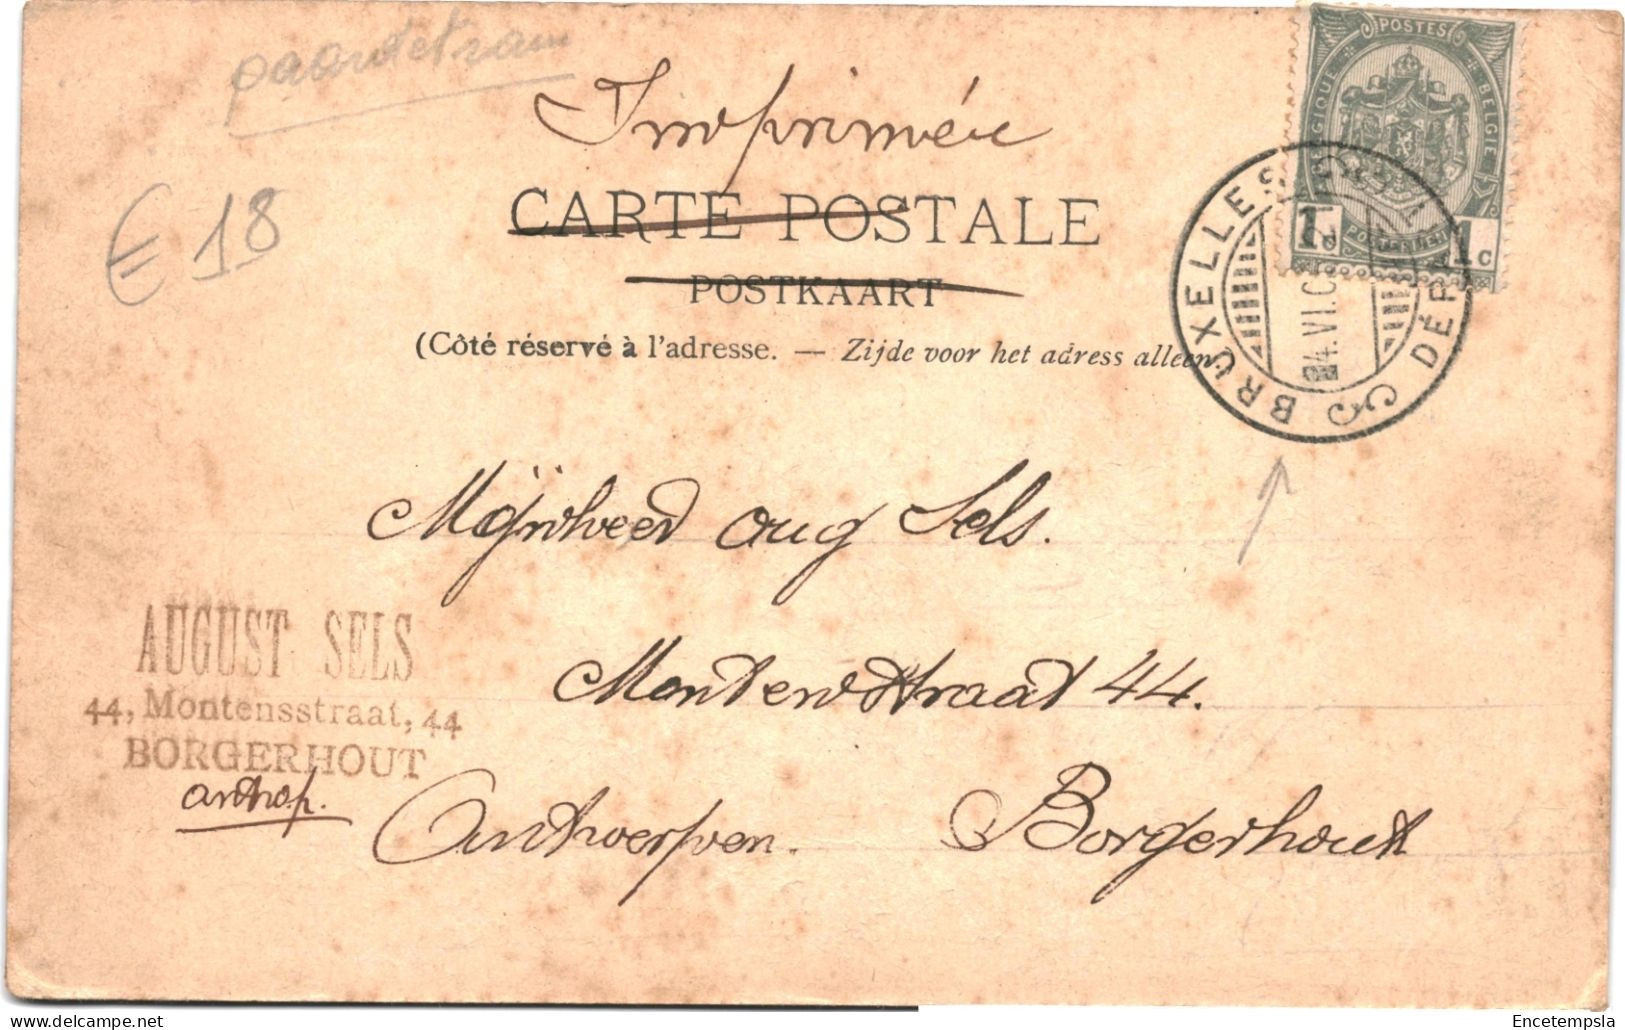 paardetram
Imprimée
€ 18
CARTE POSTALE
POSTKAART
(Côté réservé à l'adresse. — Zijde voor het adress alleen.
POSTES
BELGIQUE
BELGIE
1c 1c
BRUXELLES DÉP
Mijnheer Aug Sels.
AUGUST SELS
44, Montensstraat, 44
BORGERHOUT
Montenstraat 44.
Antwerpen. Borgerhout
Encetempsla